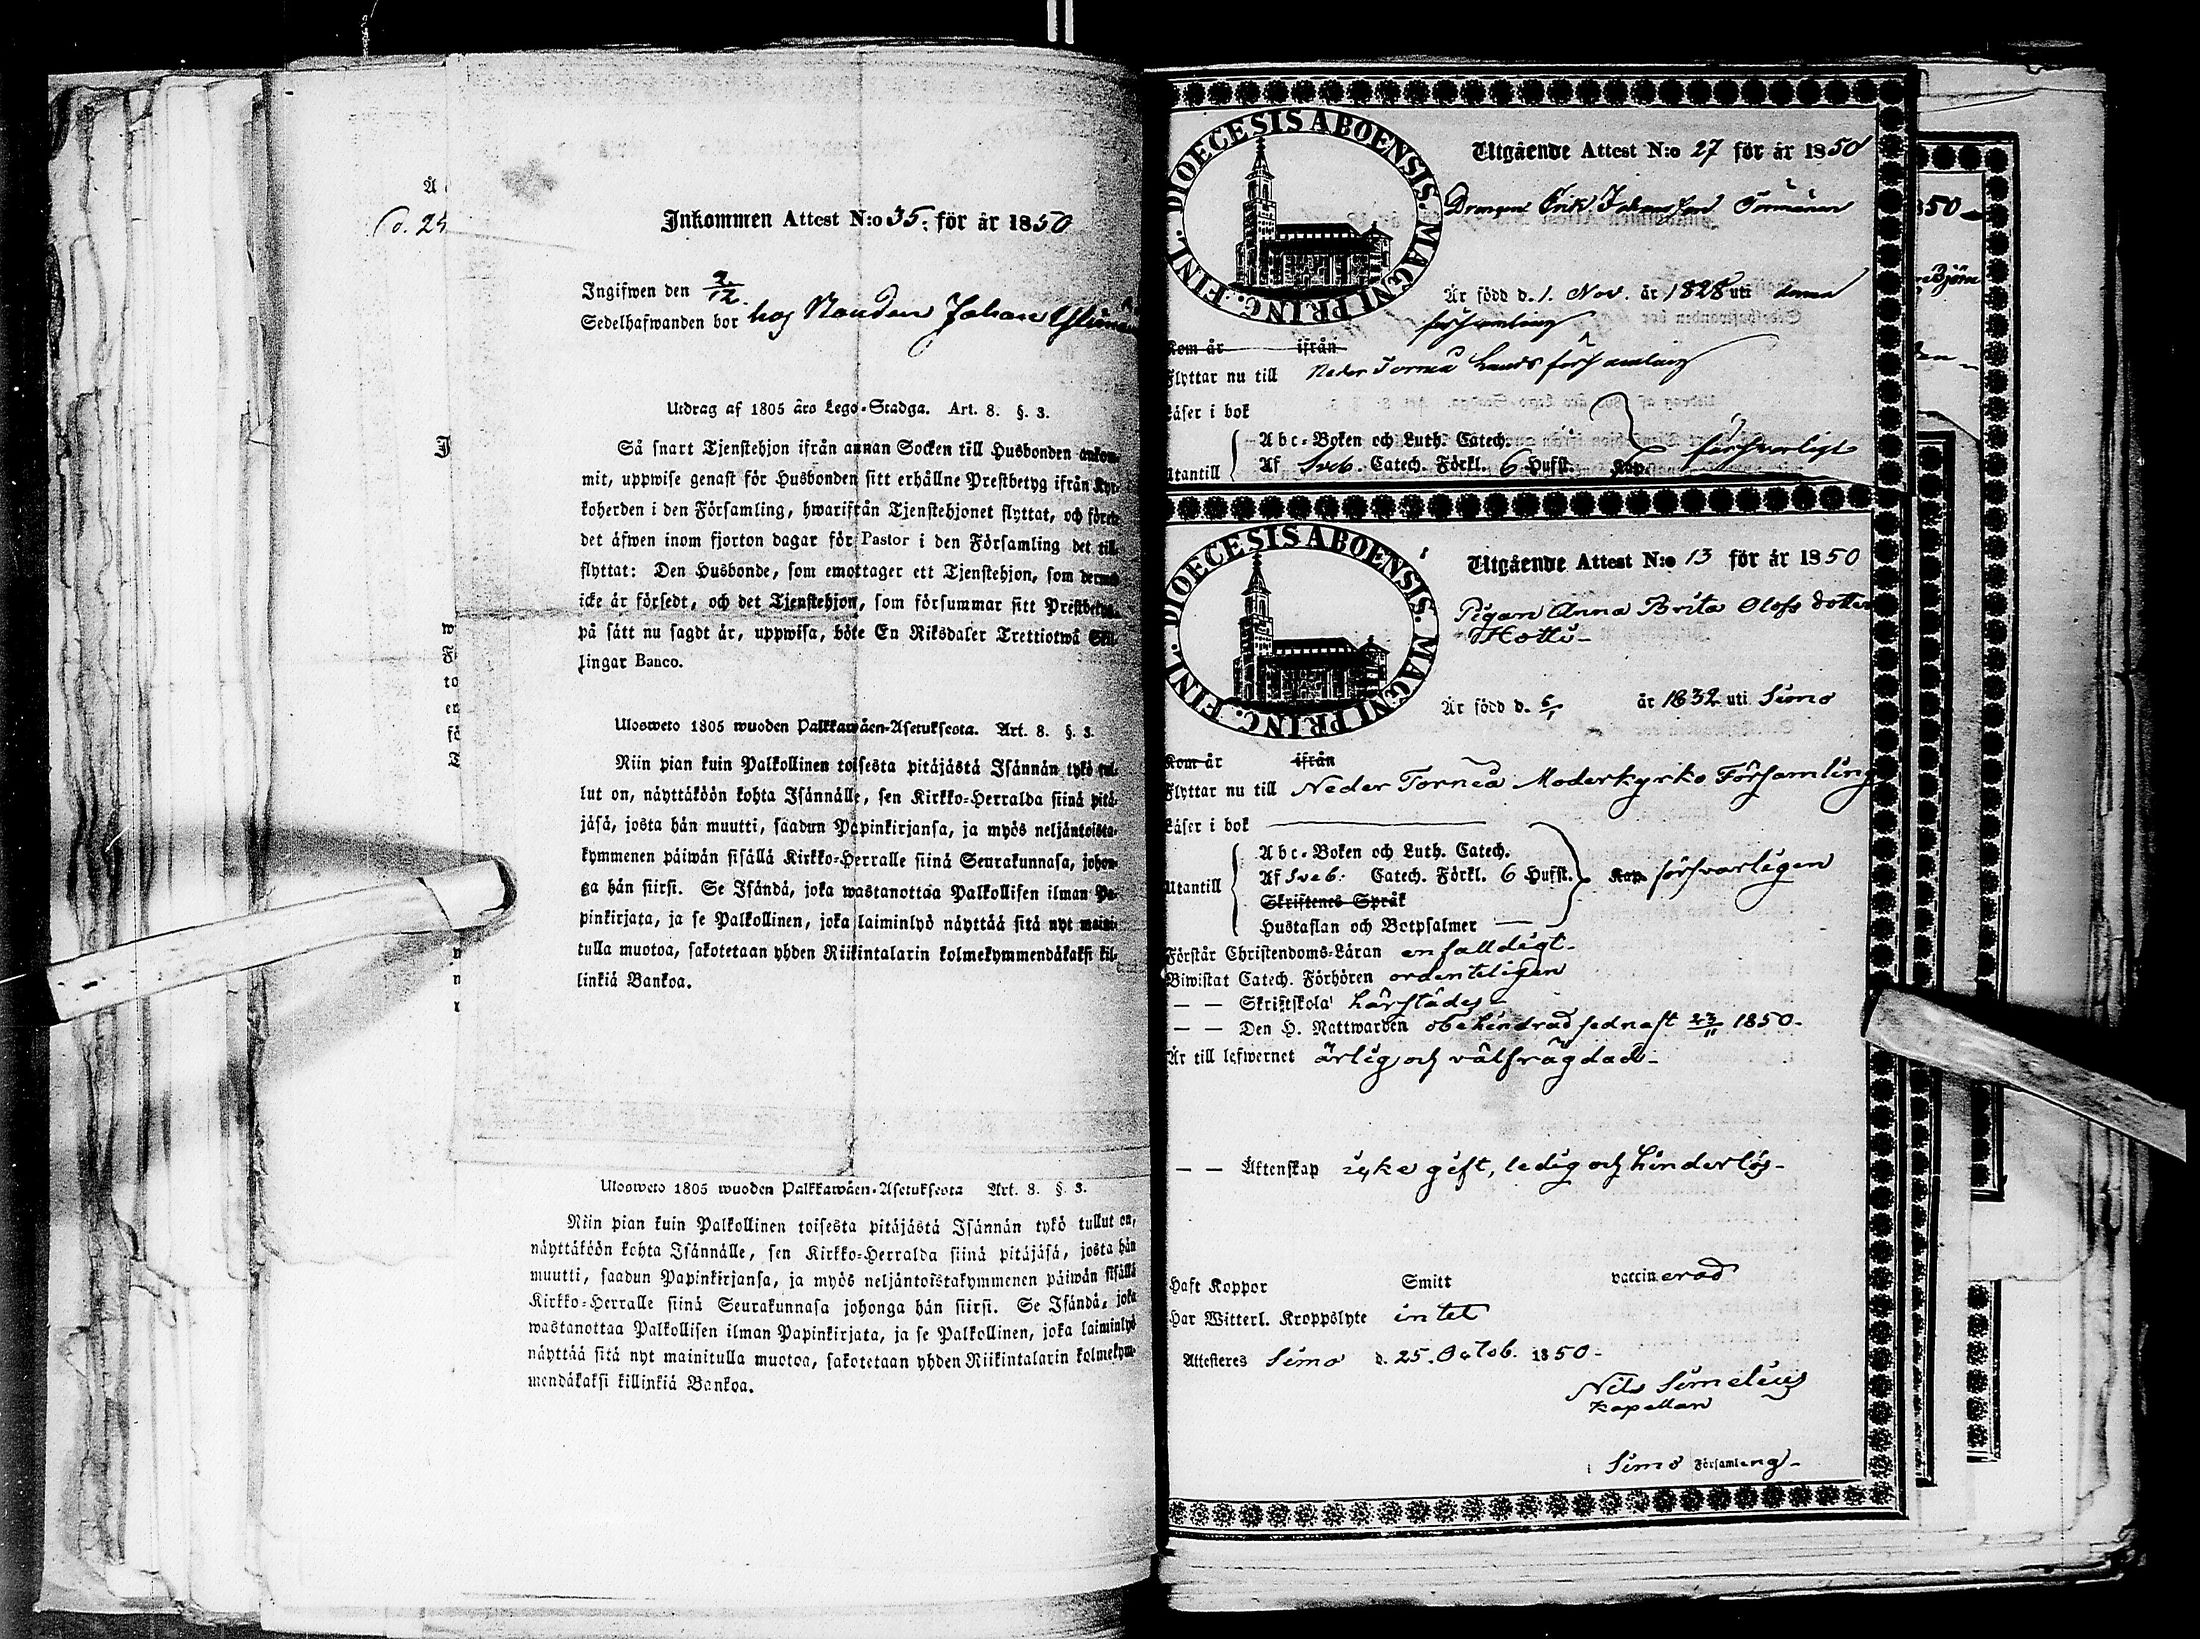 Å
d. 25
Inkommen Attest N:o 35. för år 1850
Ingifwen den 2/12.
Sedelhafwanden bor hos Bonden Johan
Utdrag af 1805 års Lego-Stadga. Art. 8. §. 3.
Så snart Tjenstehjon ifrån annan Socken till Husbonden ankom-
mit, uppwise genast för Husbonden sitt erhållne Prestbetyg ifrån Kyr-
koherden i den Församling, hwarifrån Tjenstehjonet flyttat, och förete
det äfwen inom fjorton dagar för Pastor i den Församling det till-
flyttat: Den Husbonde, som emottager ett Tjenstehjon, som dermed
icke är försedt, och det Tjenstehjon, som försummar sitt Prestbetyg,
på sätt nu sagdt är, uppwisa, böte En Riksdaler Trettiotwå Skil-
lingar Banco.
Ulosweto 1805 wuoden Palkkawäen-Asetuksesta. Art. 8. §. 3.
Niin pian kuin Palkollinen toisesta pitäjästä Isännän tykö tul-
lut on, näyttäköön kohta Isännälle, sen Kirkko-Herralda siinä pitä-
jäsä, josta hän muutti, saadun Papinkirjansa, ja myös neljäntoista-
kymmenen päiwän sisällä Kirkko-Herralle siinä Seurakunnasa, johon-
ga hän siirsi. Se Isändä, joka wastanottaa Palkollisen ilman Pa-
pinkirjata, ja se Palkollinen, joka laiminlyö näyttää sitä nyt maini-
tulla muotoa, sakotetaan yhden Riikintalarin kolmekymmendäkaksi kil-
linkiä Bankoa.
Ulosweto 1805 wuoden Palkkawäen-Asetuksesta Art. 8. §. 3.
Niin pian kuin Palkollinen toisesta pitäjästä Isännän tykö tullut on,
näyttäköön kohta Isännälle, sen Kirkko-Herralda siinä pitäjäsä, josta hän
muutti, saadun Papinkirjansa, ja myös neljäntoistakymmenen päiwän sisällä
Kirkko-Herralle siinä Seurakunnasa johonga hän siirsi. Se Isändä, joka
wastanottaa Palkollisen ilman Papinkirjata, ja se Palkollinen, joka laiminlyö
näyttää sitä nyt mainitulla muotoa, sakotetaan yhden Riikintalarin kolmekym-
mendäkaksi killinkiä Bankoa.
FINL. DIOECESIS ABOENSIS. MAGNI PRINC.
Utgående Attest N:o 27 för år 1850
Drengen Erik Johansson Törmänen
Är född d. 1. Nov. år 1828 uti denna
församling
Kom år ifrån
Flyttar nu till Neder Torneå Lands församling
Läser i bok
Abc-Boken och Luth. Catech.
Utantill Af Sveb. Catech. Förkl. 6 Hufst. Kap. försvarligt
850
FINL. DIOECESIS ABOENSIS. MAGNI PRINC.
Utgående Attest N:o 13 för år 1850
Pigan Anna Brita Olofs dotter
Hotti
Är född d. 6/1 år 1832 uti Simo
Kom år ifrån
Flyttar nu till Neder Torneå Moderkyrko Församling
Läser i bok
Abc-Boken och Luth. Catech.
Utantill Af Sveb. Catech. Förkl. 6 Hufst. Kap. försvarligen
Skriftenes Språk
Hustaflan och Botpsalmer
Förstår Christendoms-Läran enfalldigt
Biwistat Catech. Förhören ordenteligen
— — Skriftskola härstädes
— — Den H. Nattwarden obehindrad sednast 23/11 1850.
Är till lefwernet ärlig och välfrägdad
— — Äktenskap icke gift, ledig och hinderlös
Haft Koppor Smitt vaccinerad
Har Witterl. Kroppslyte intet
Attesteres Simo d. 25. Octob. 1850
Nils Simelius
Kapellan
Simo Församling